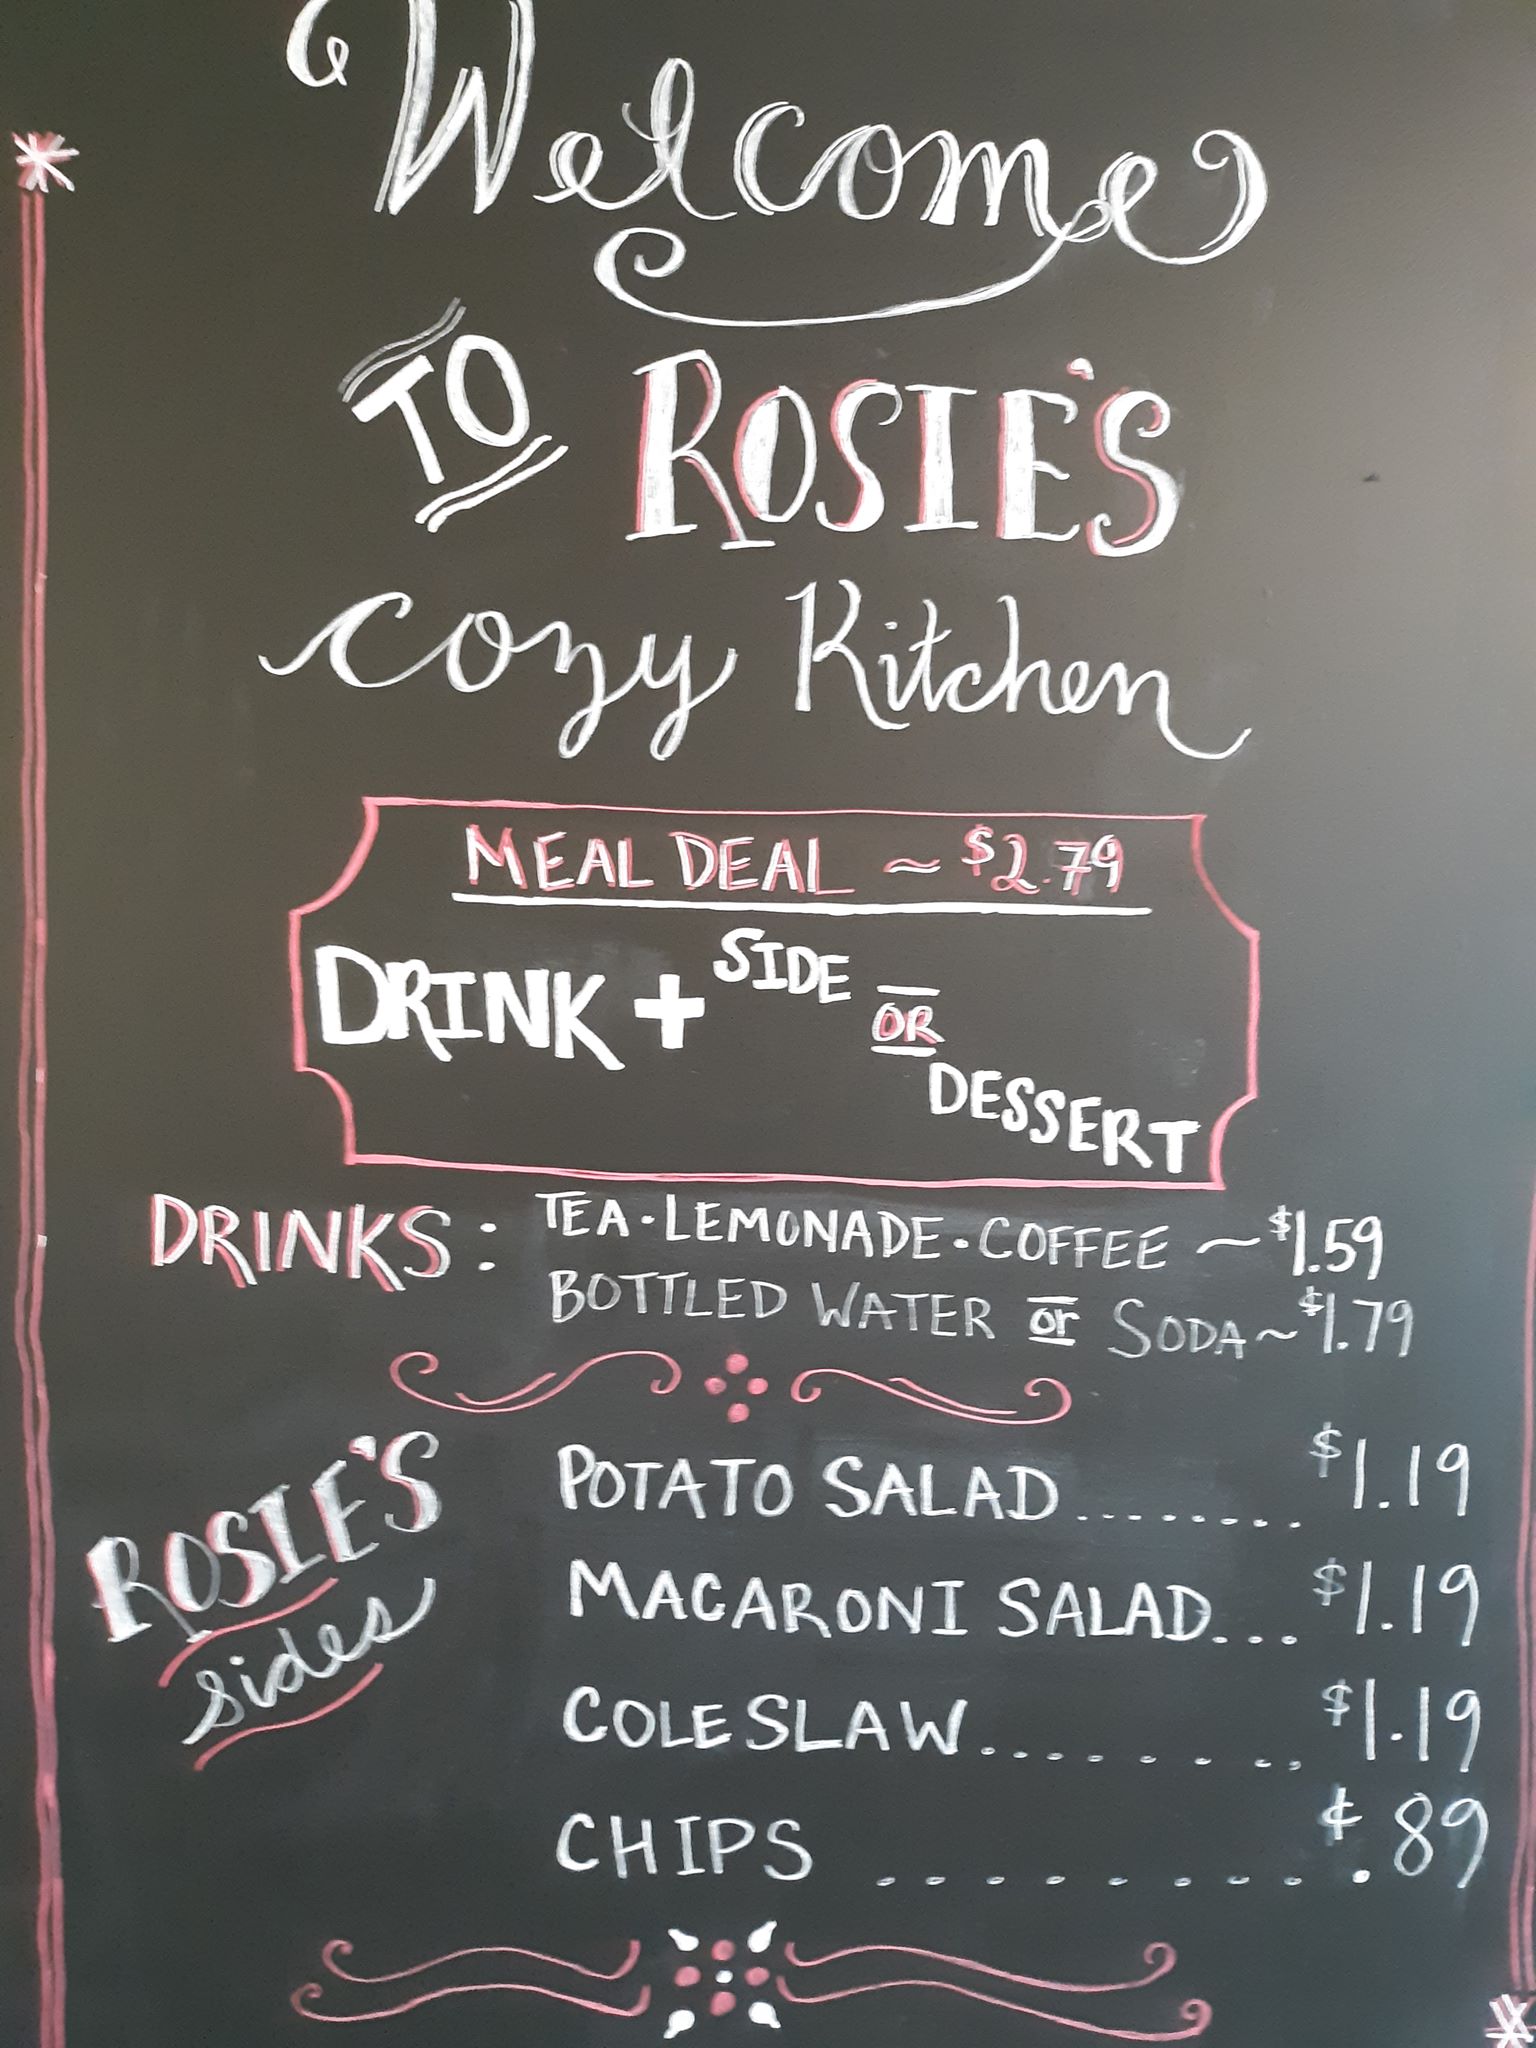 Welcome
TO ROSIE'S
Cozy Kitchen
MEAL DEAL ~ $2.79
DRINK + SIDE OR DESSERT
DRINKS: TEA · LEMONADE · COFFEE ~ $1.59
BOTTLED WATER or SODA ~ $1.79
ROSIE'S
sides
POTATO SALAD........ $1.19
MACARONI SALAD... $1.19
COLESLAW......... $1.19
CHIPS ......... ¢.89